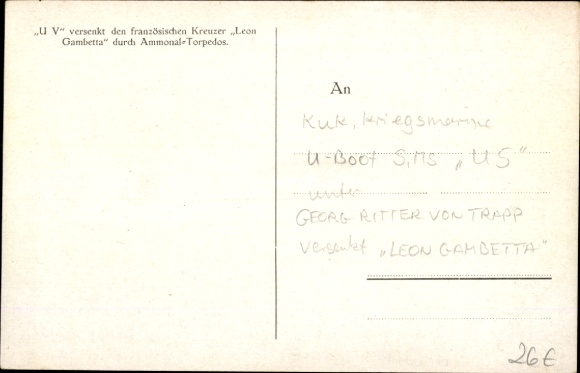 „U V“ versenkt den französischen Kreuzer „Leon
Gambetta“ durch Ammonal-Torpedos.
An
KuK. Kriegsmarine
U-Boot S.MS „U5“
unter
GEORG RITTER VON TRAPP
versenkt „LEON GAMBETTA“
26€